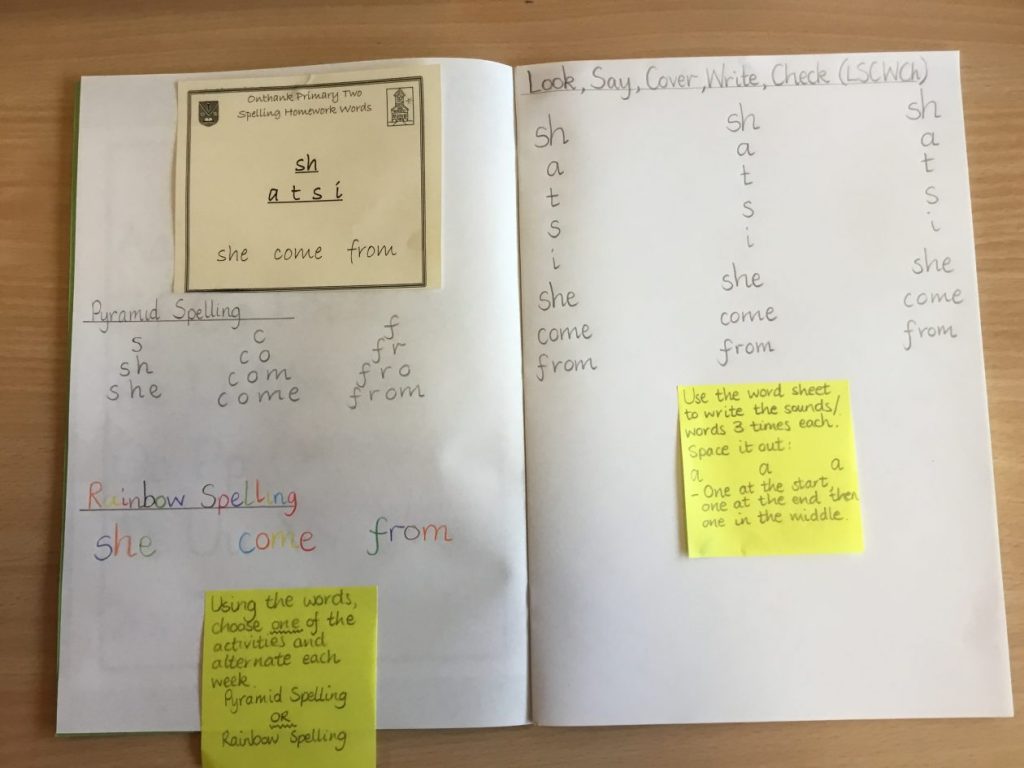 Onthank Primary Two
Spelling Homework Words
sh
a t s i
she come from
Pyramid Spelling
s c f
sh co fr
she com fro
come from
Rainbow Spelling
she come from
Using the words,
choose one of the
activities and
alternate each
week
Pyramid Spelling
OR
Rainbow Spelling
Look, Say, Cover, Write, Check (LSCWCh)
sh sh sh
a a a
t t t
s s s
i i i
she she she
come come come
from from from
Use the word sheet
to write the sounds/
words 3 times each.
Space it out:
a a a
- One at the start,
one at the end then
one in the middle.